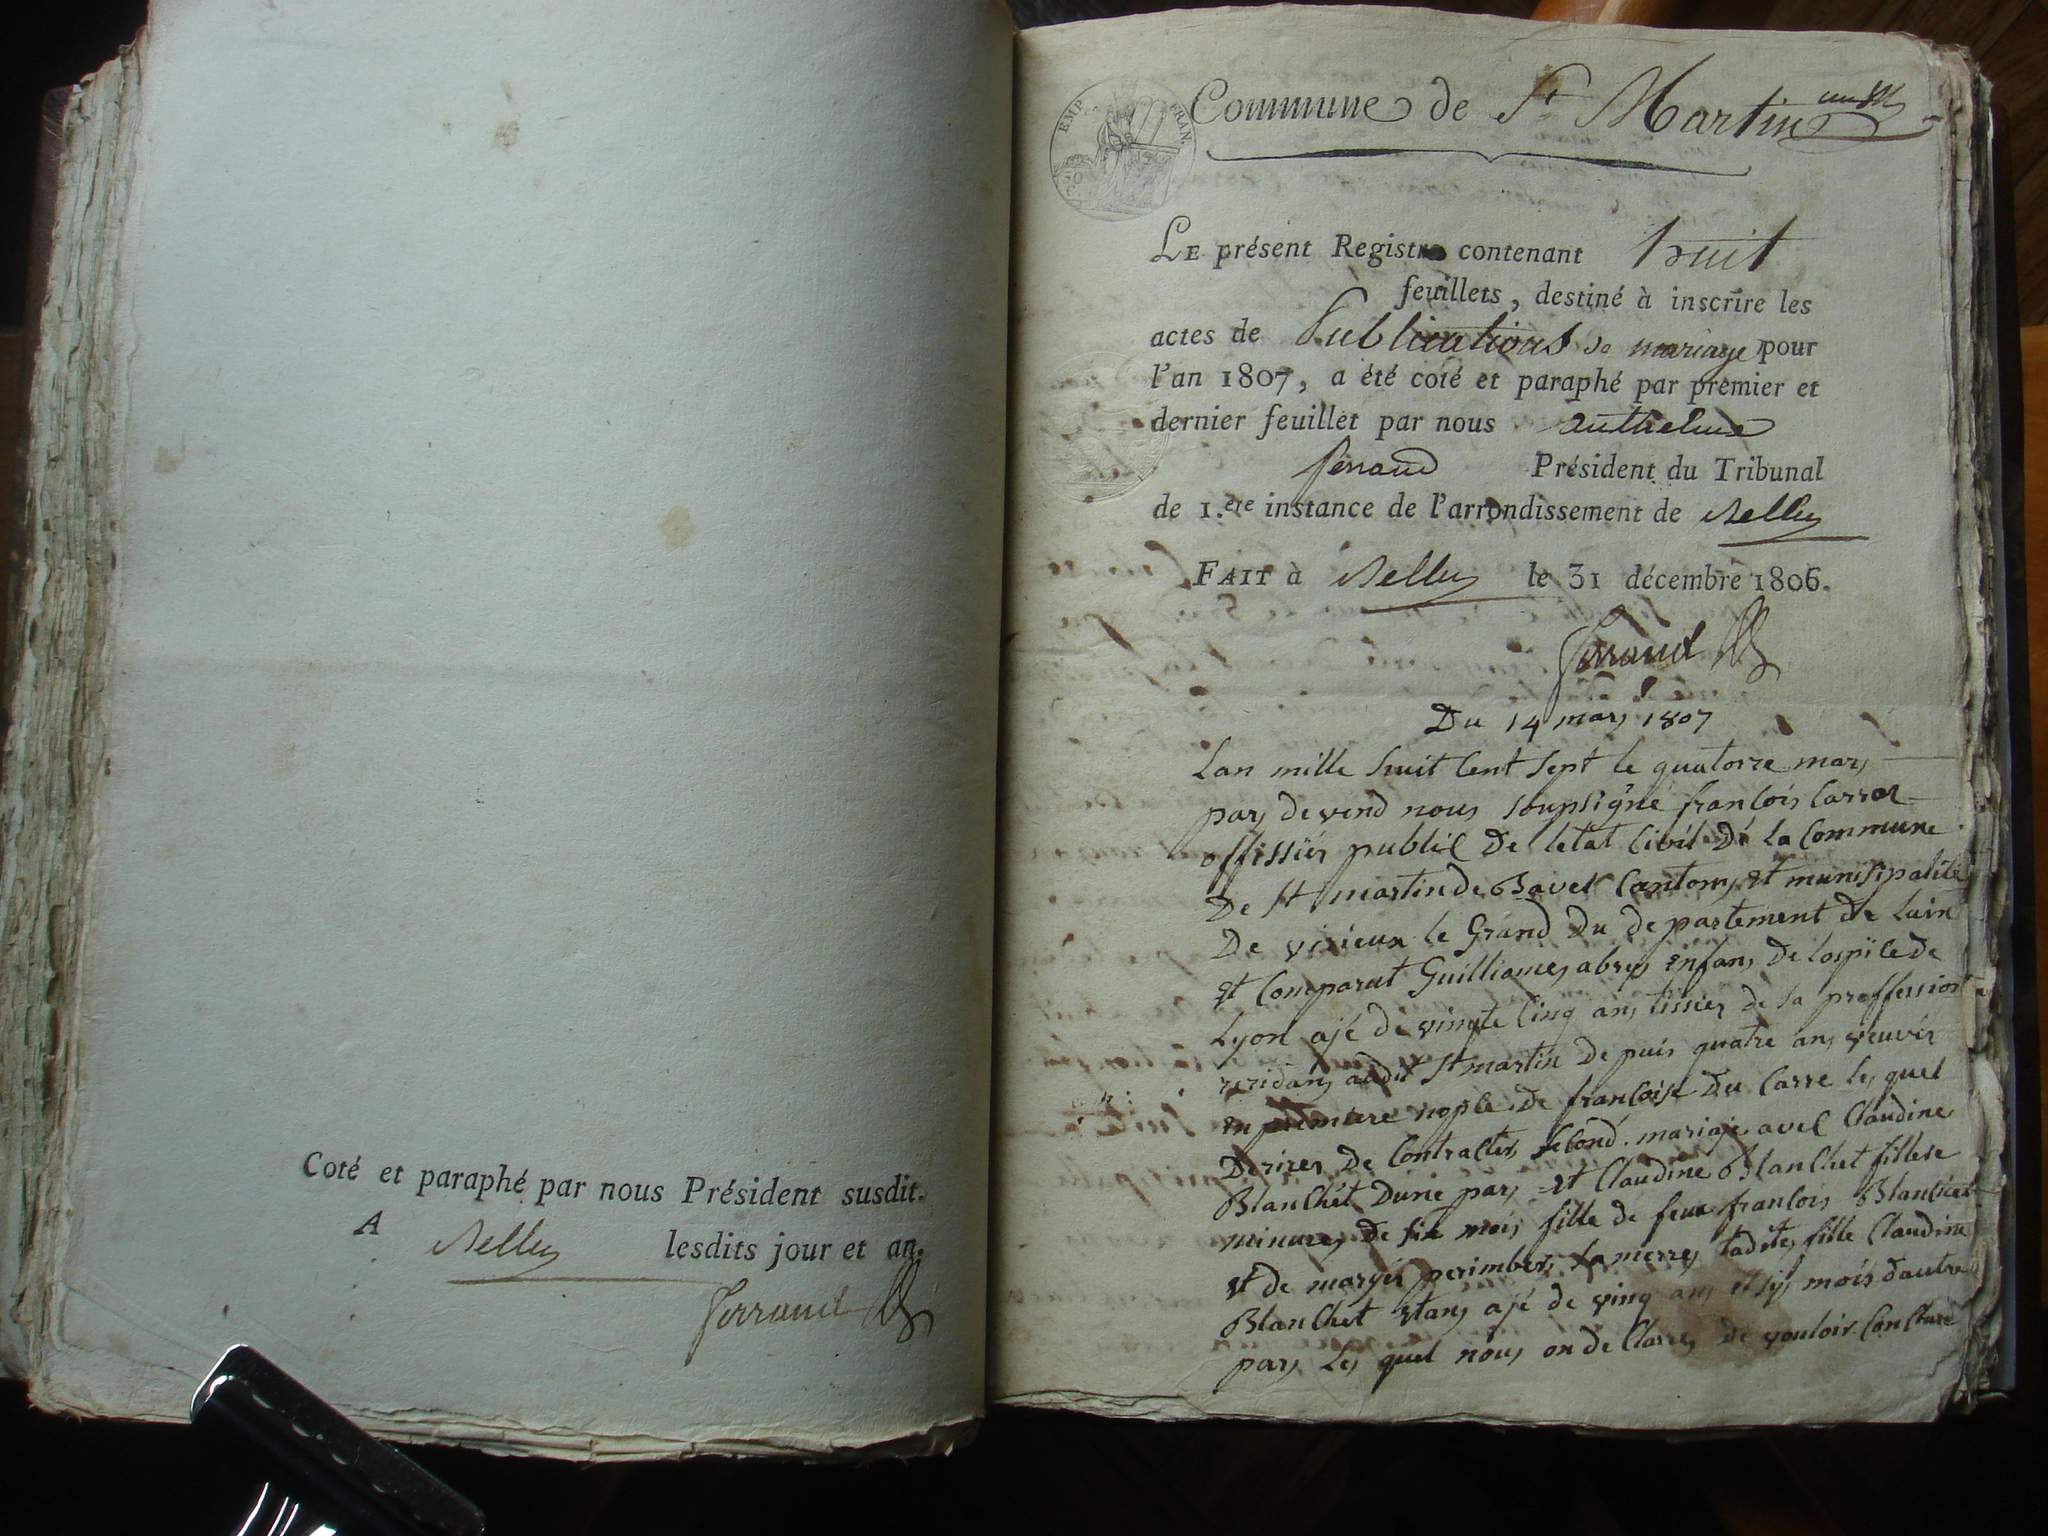 Coté et paraphé par nous Président susdit.
A Belley lesdits jour et an.
Ferraud
EMP. FRAN.
Commune de St Martin
LE présent Registre contenant huit
feuillets, destiné à inscrire les
actes de Publications de mariage pour
l'an 1807, a été coté et paraphé par premier et
dernier feuillet par nous Anthelme
Ferraud Président du Tribunal
de 1.ere instance de l'arrondissement de Belley
FAIT à Belley le 31 décembre 1806.
Ferraud
Du 14 mars 1807
Lan mille huit Cent Sept le quatorze mars
pars devend nous soupsigné françois Carrel
offissiér publiC De letat Civil Dé La Commune
De St martin de Bavel Cantons et munisipalité
De virieux le Grand Du departement de Lain
et Comparut Guilliomes abres enfans De lospiCe De
Lyon ajé dé vingte Cinq ans tissier de sa proffession
rezidans audit St martin De puis quatre ans veuvés
en premiere nople De françoise Du Carre les quel
Dezirer De Contracter seCond mariaje aveC Claudine
BlanChet Dune pars et Claudine BlanChet fillese
minures De six mois fille de feux françois BlanChet
et de margés perimbers sa merres Ladites fille Claudine
BlanChet etans ajé de ving ans et sis mois dautre
pars Les quel nous on de Clarés de vouloir ConClure